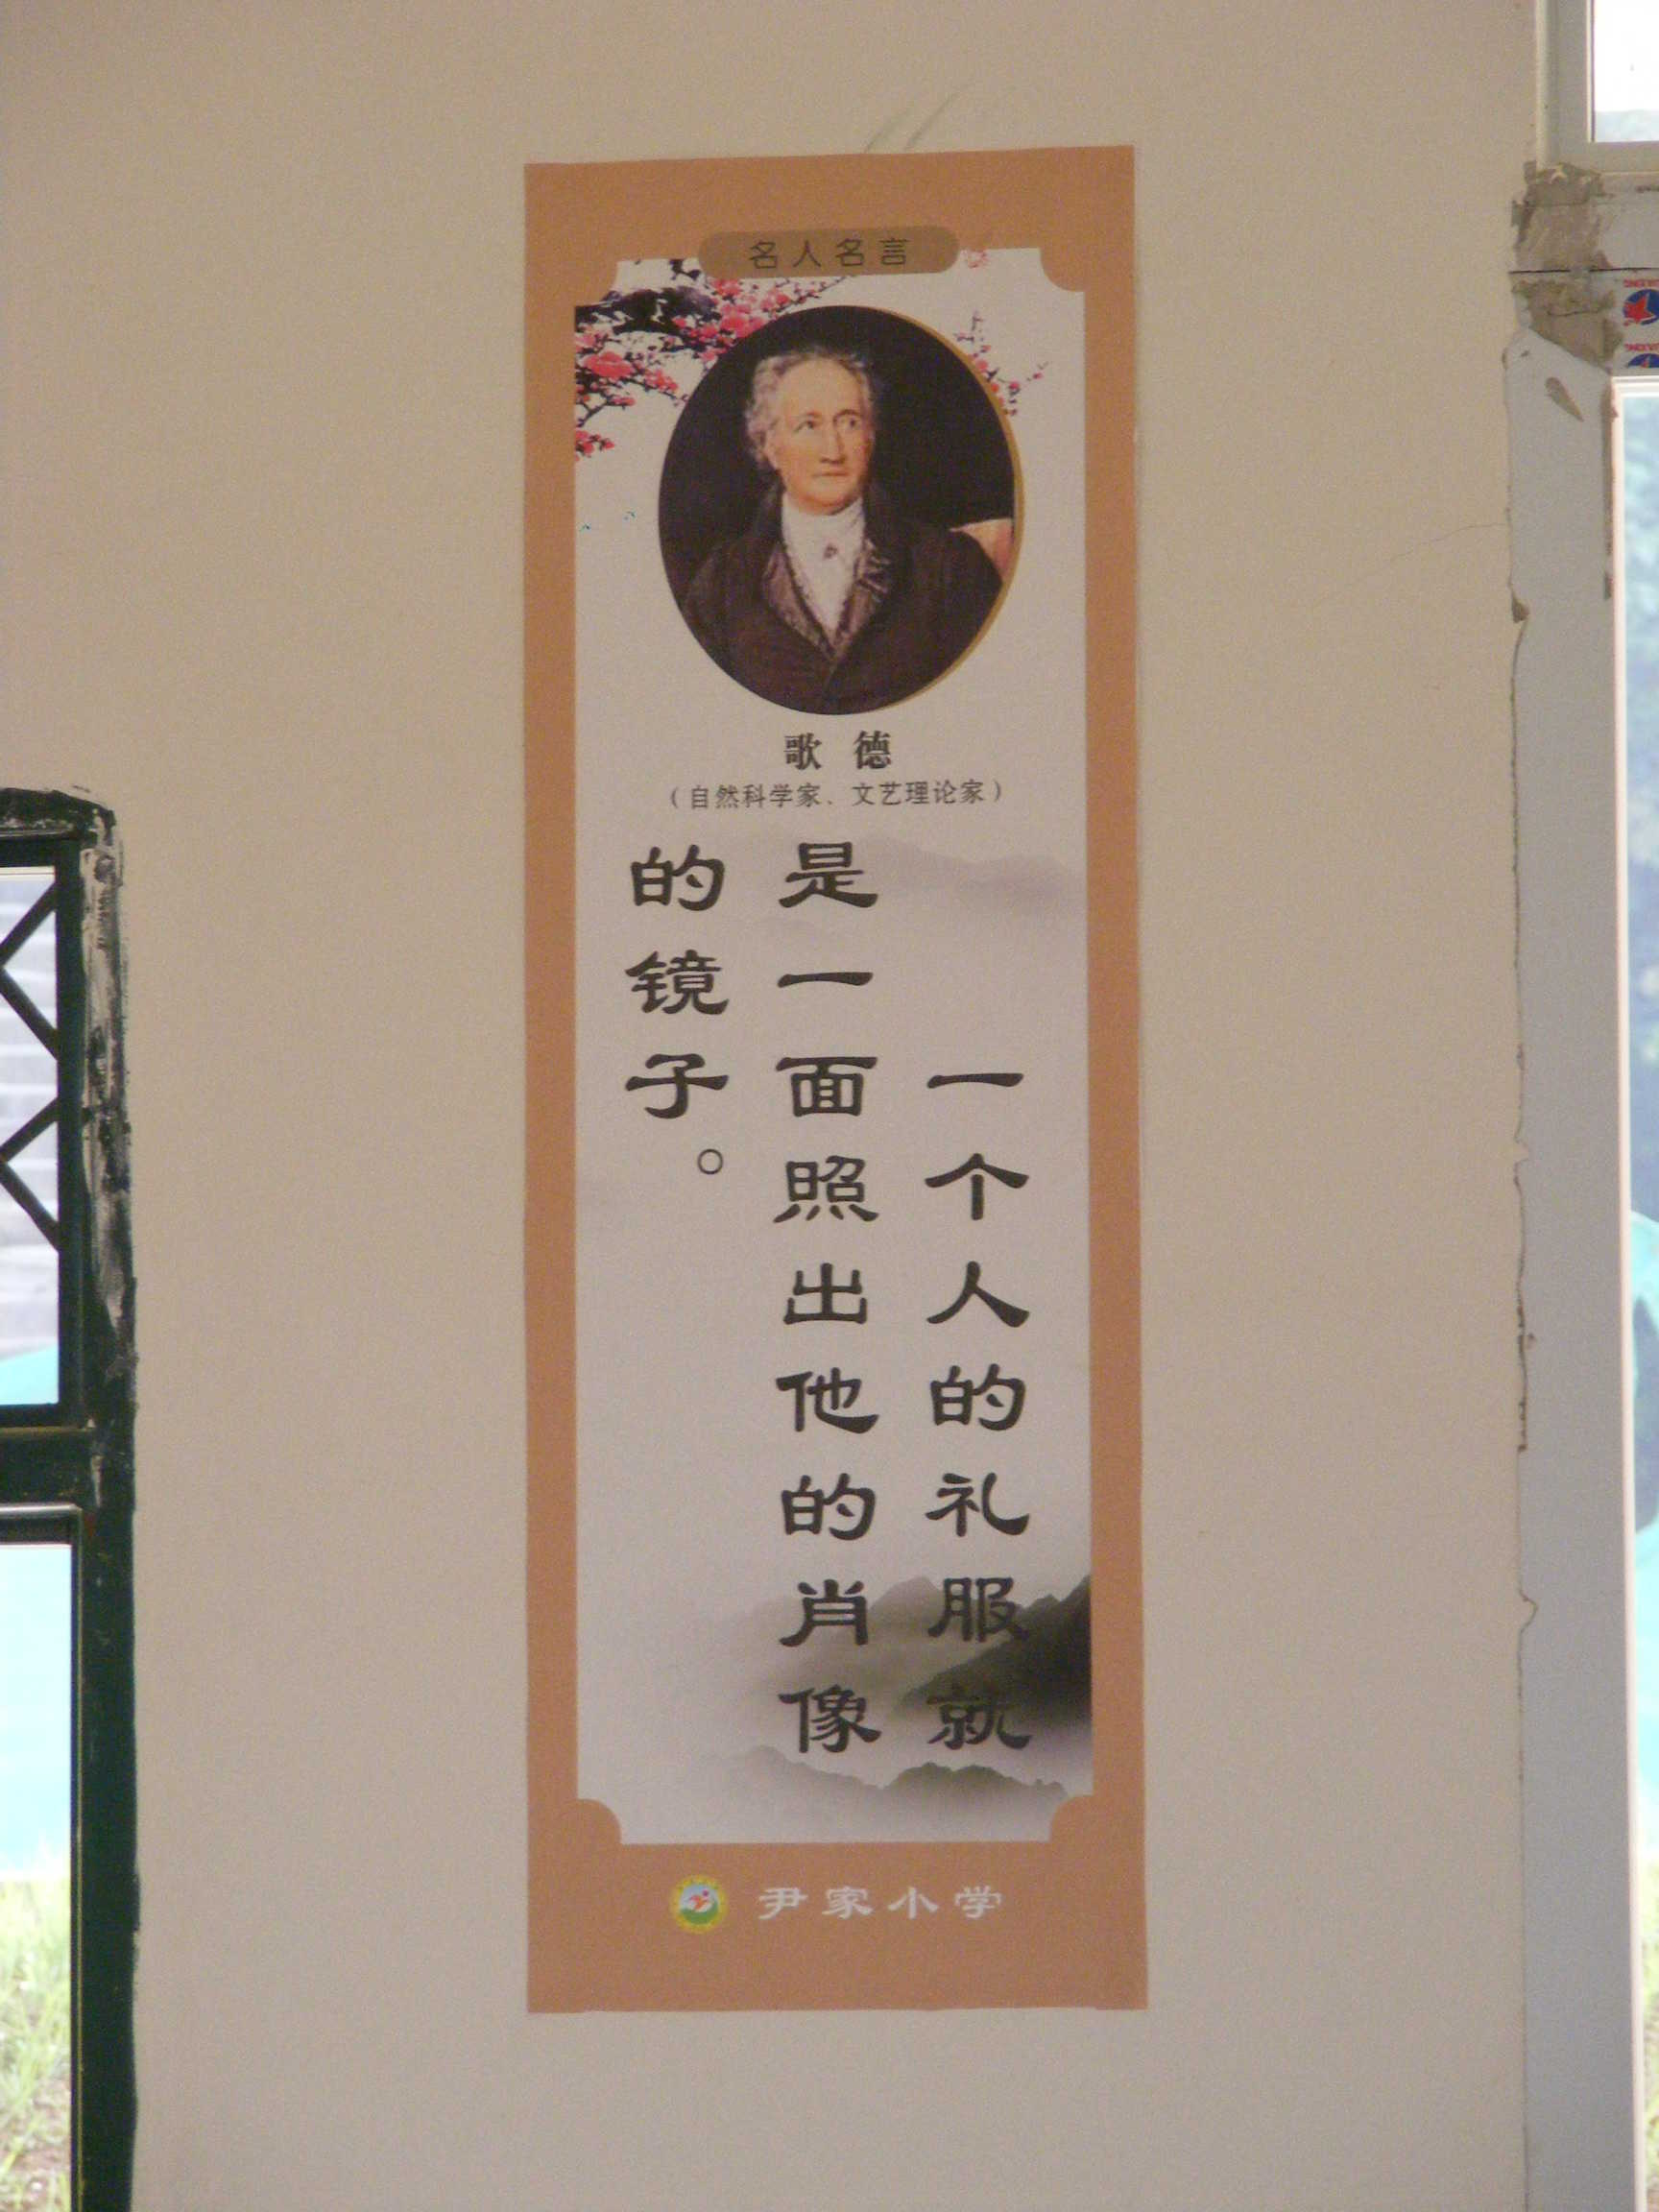 名人名言
歌德
（自然科学家、文艺理论家）
一个人的礼服就
是一面照出他的肖像
的镜子。
尹家小学